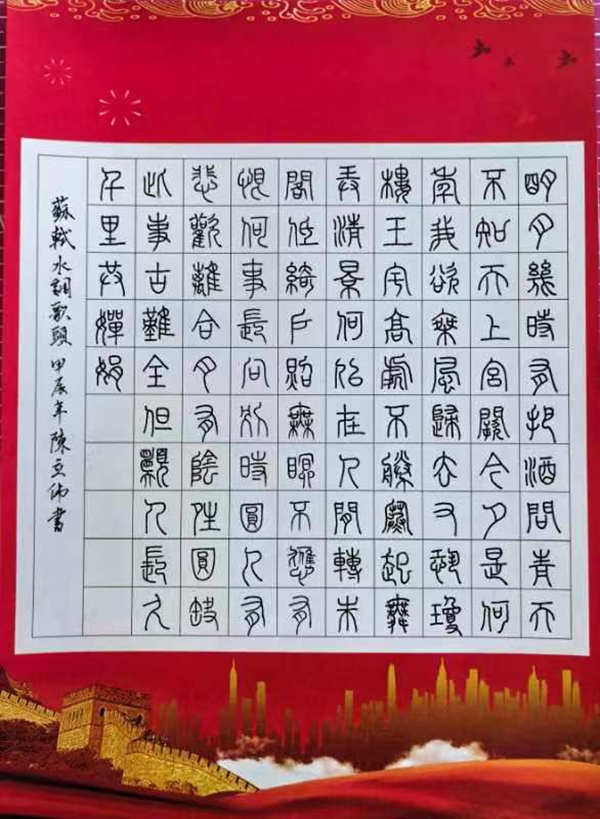 明月幾時有把酒問青天
不知天上宮闕今夕是何
年我欲乘風歸去又恐瓊
樓玉宇高處不勝寒起舞
弄清景何似在人間轉朱
閣低綺戶照無眠不應有
恨何事長向別時圓人有
悲歡離合月有陰晴圓缺
此事古難全但願人長久
千里共嬋娟
蘇軾水調歌頭 甲辰年陳立書